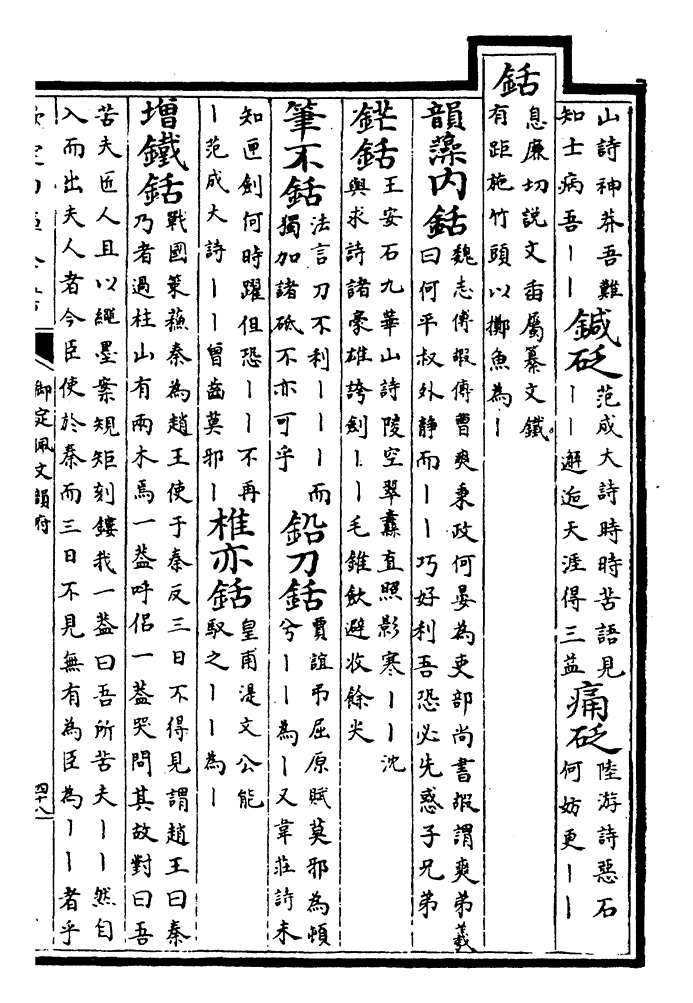 山詩神莽吾難
知士病吾丨丨
鍼砭
范成大詩時時苦語見
丨丨邂逅天涯得三益
痛砭
陸游詩惡石
何妨更丨丨
銛
息廉切説文臿屬纂文鐵
有距施竹頭以擲魚為丨
韻藻
内銛
魏志傅嘏傳曹爽秉政何晏為吏部尚書嘏謂爽弟羲
曰何平叔外静而丨丨巧好利吾恐必先惑子兄弟
鋩銛
王安石九華山詩陵空翠纛直照影寒丨丨沈
與求詩諸豪雄誇劍丨丨毛錐飲避收餘尖
筆不銛
法言刀不利丨丨丨而
獨加諸砥不亦可乎
鉛刀銛
賈誼弔屈原賦莫邪為頓
兮丨丨為丨又韋莊詩未
知匣劍何時躍但恐丨丨不再
丨范成大詩丨丨曾齒莫邪丨
椎亦銛
皇甫湜文公能
馭之丨丨為丨
增
鐵銛
戰國策蘇秦為趙王使于秦反三日不得見謂趙王曰秦
乃者過柱山有兩木焉一葢呼侣一葢哭問其故對曰吾
苦夫匠人且以繩墨案規矩刻鏤我一葢曰吾所苦夫丨丨然自
入而出夫人者今臣使於秦而三日不見無有為臣為丨丨者乎
御定佩文韻府
四十八